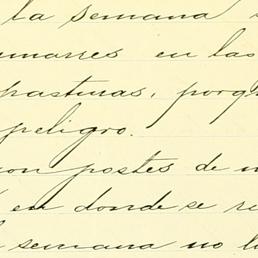 la semana
en las
pasturas, porq
peligro.
con postes de m
en donde se re
semana no l